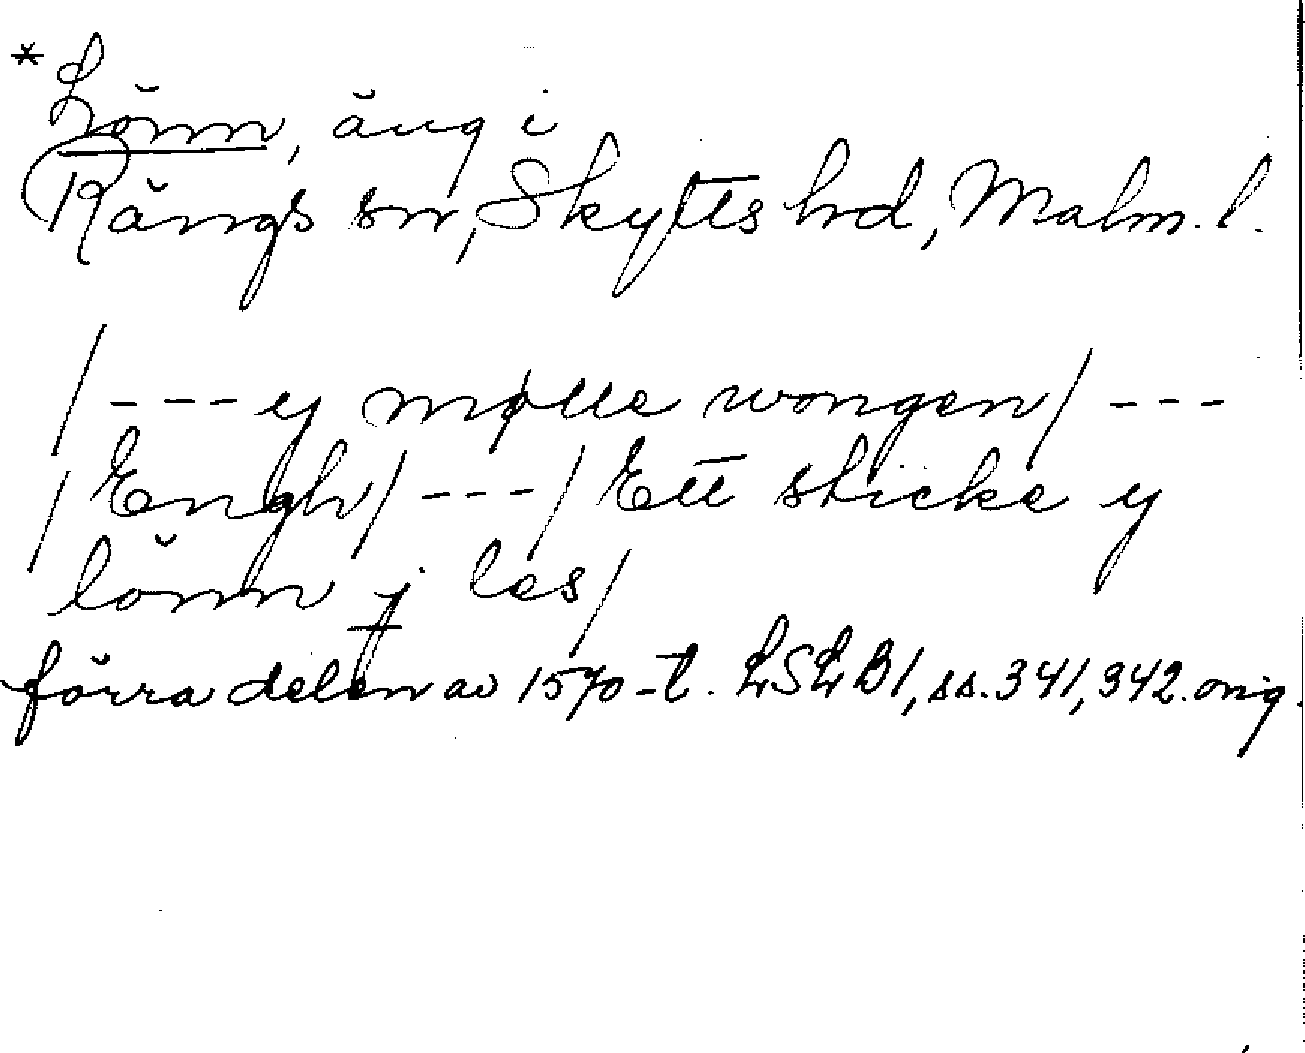 * Lönn, äng i
Rängs sn, Skytts hd, Malm. l.
/--- y mølle wongen/ ---
/Engh/ --- /Ett sticke y
lönn j les/
förra delen av 1570-t. LSLB1, ss. 341, 342. orig.